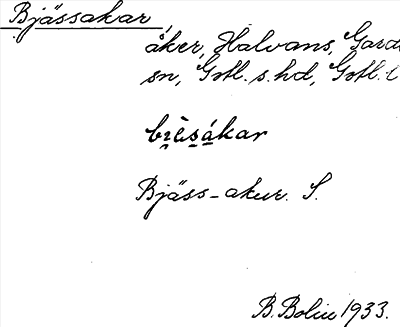 Bjässakar,
åker, Halvans, Garde
sn, Gotl. s. hd, Gotl. l
bi̯èsákar
Bjäss-akur. S.
B. Bolin 1933.